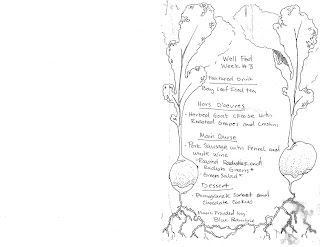 Well Fed
Week #3
Featured Drink
Bay Leaf Iced Tea
Hors D'oeuvres
- Herbed Goat Cheese with
Roasted Grapes and Crostini
Main Course
- Pork Sausage with Fennel and
White Wine
- Roasted Radishes and
Radish Greens*
- Green Salad*
Dessert
- Pomegranate Sorbet and
Chocolate Cookies
Provided by
Blue